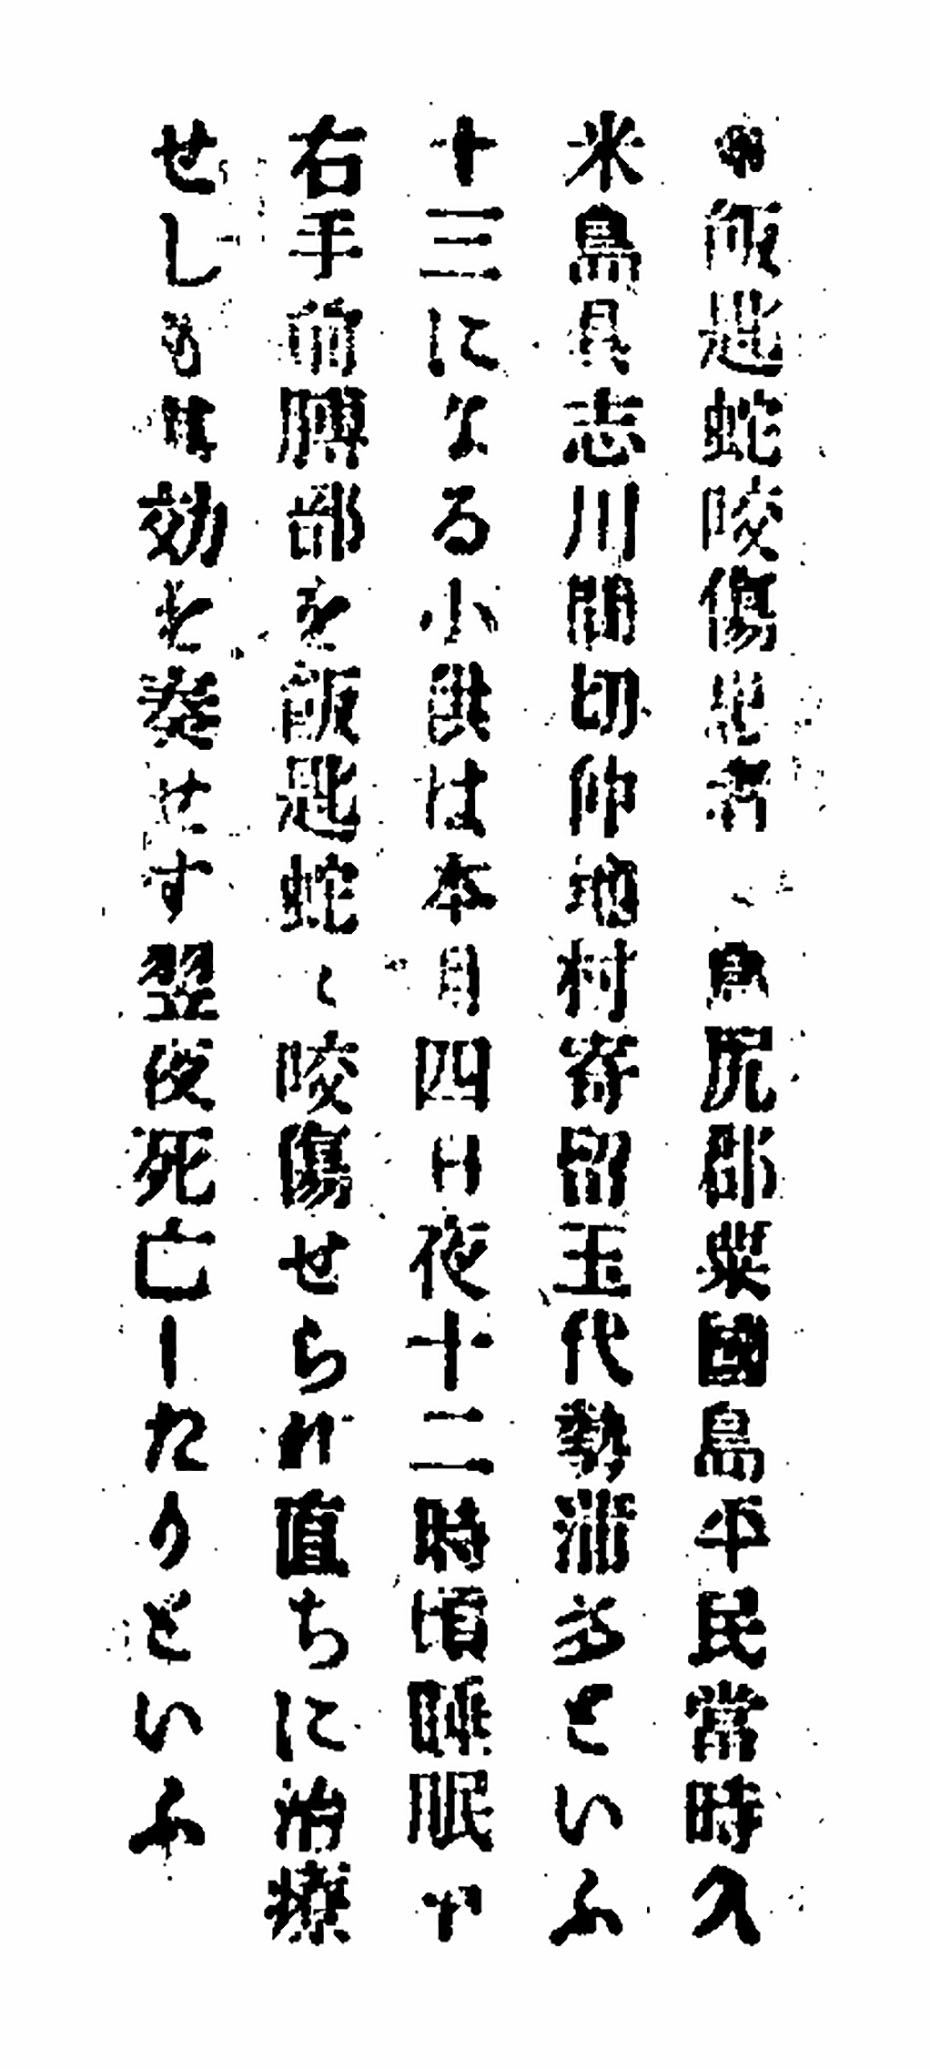 ●飯匙蛇咬傷患者　、島尻郡粟國島平民當時久
米島具志川間切仲地村寄留玉代勢蒲多といふ
十三になる小供は本月四日夜十二時頃睡眠中
右手前膊部を飯匙蛇に咬傷せられ直ちに治療
せしもは効を奏せす翌夜死亡したりといふ